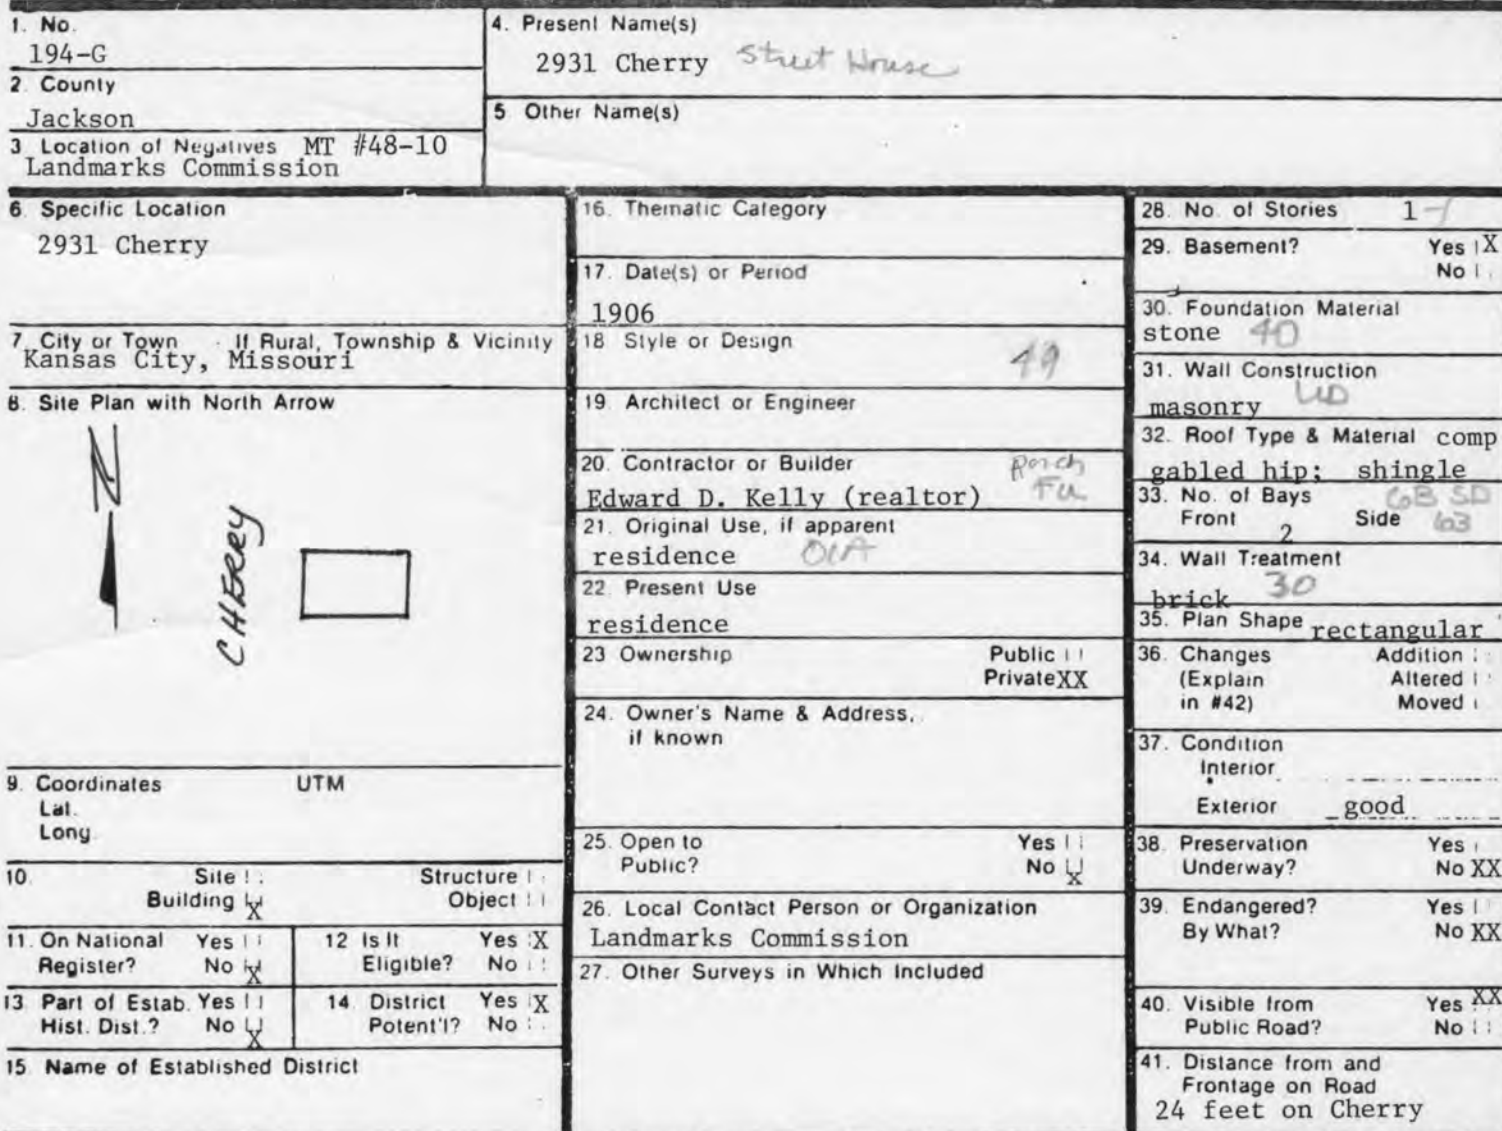 1. No.
194-G
2. County
Jackson
3 Location of Negatives MT #48-10
Landmarks Commission
4. Present Name(s)
2931 Cherry Street House
5 Other Name(s)
6. Specific Location
2931 Cherry
7. City or Town If Rural, Township & Vicinity
Kansas City, Missouri
8. Site Plan with North Arrow
N
CHERRY
9. Coordinates UTM
Lat.
Long.
10. Site Structure
Building X Object
11. On National Yes
Register? No X
12 Is It Yes X
Eligible? No
13 Part of Estab. Yes
Hist. Dist.? No X
14. District Yes X
Potent'l? No
15. Name of Established District
16. Thematic Category
17. Date(s) or Period
1906
18 Style or Design
49
19. Architect or Engineer
20. Contractor or Builder Porch
Edward D. Kelly (realtor) Fu
21. Original Use, if apparent
residence 01A
22. Present Use
residence
23 Ownership Public
Private XX
24. Owner's Name & Address,
if known
25. Open to Yes
Public? No X
26. Local Contact Person or Organization
Landmarks Commission
27. Other Surveys in Which Included
28. No. of Stories 1
29. Basement? Yes X
No
30. Foundation Material
stone 40
31. Wall Construction
masonry UD
32. Roof Type & Material comp
gabled hip; shingle
33. No. of Bays GB SD
Front 2 Side 63
34. Wall Treatment
brick 30
35. Plan Shape rectangular
36. Changes Addition
(Explain Altered
in #42) Moved
37. Condition
Interior
Exterior good
38. Preservation Yes
Underway? No XX
39. Endangered? Yes
By What? No XX
40. Visible from Yes XX
Public Road? No
41. Distance from and
Frontage on Road
24 feet on Cherry